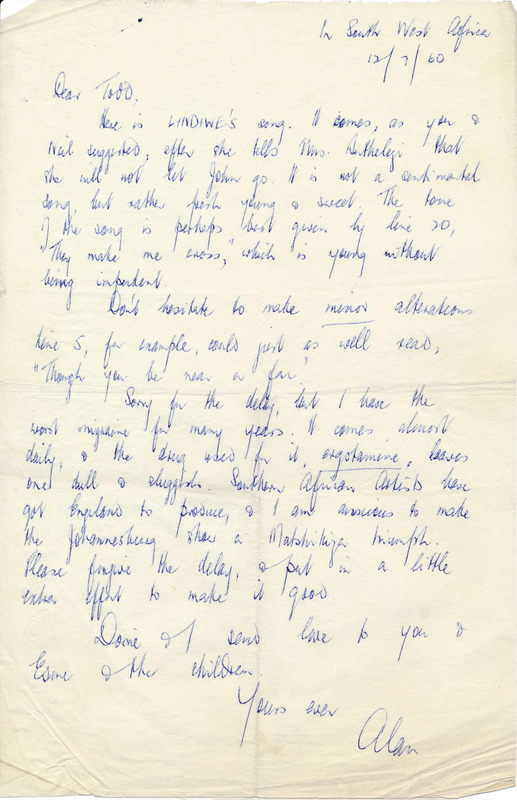 In South West Africa
12/7/60
Dear Todd,
Here is LINDIWE'S song. It comes, as you &
Neil suggested, after she tells Mrs. Buthelezi that
she will not let John go. It is not a sentimental
song, but rather fresh young & sweet. The tone
of the song is perhaps best given by line 20,
"They make me cross," which is young without
being impudent.
Don't hesitate to make minor alterations
Line 5, for example, could just as well read,
"Though you be near or far."
Sorry for the delay, but I have the
worst migraine for many years. It comes almost
daily, & the drug used for it, ergotamine, leaves
one dull & sluggish. Southern African Artists have
got England to produce, & I am anxious to make
the Johannesburg show a Matshikiza triumph.
Please forgive the delay, & put in a little
extra effort to make it good
Dorrie & I send love to you &
Esme & the children.
Yours ever
Alan